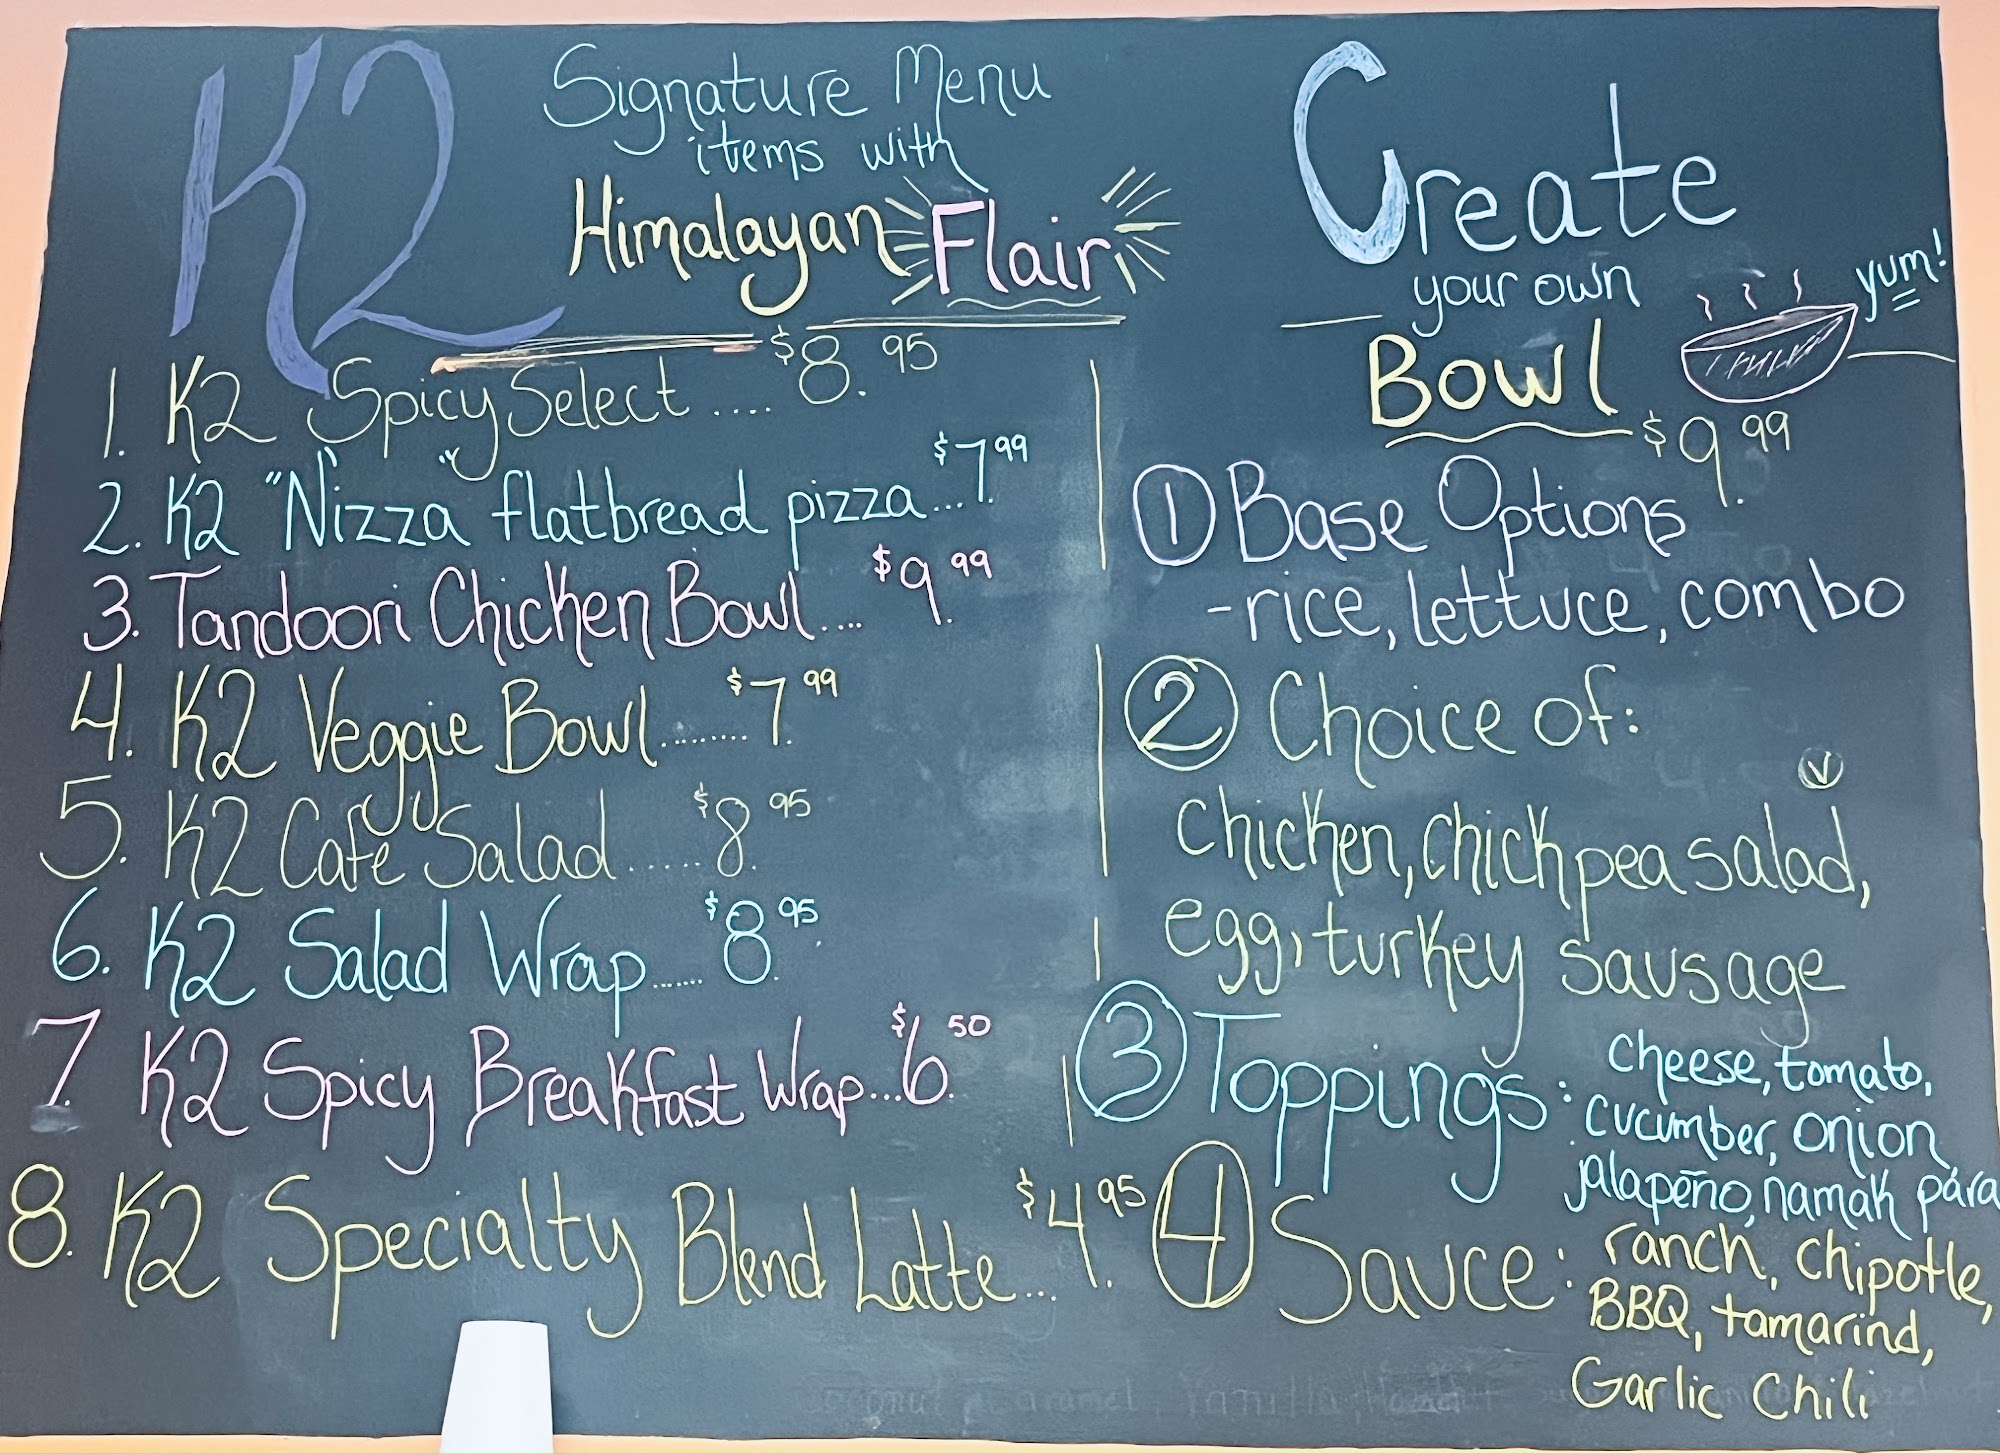 K2
Signature Menu
items with
Himalayan Flair
1. K2 Spicy Select .... $8.95
2. K2 "Nizza" flatbread pizza... $7.99
3. Tandoori Chicken Bowl.... $9.99
4. K2 Veggie Bowl......... $7.99
5. K2 Café Salad..... $8.95
6. K2 Salad Wrap...... $8.95
7. K2 Spicy Breakfast Wrap... $6.50
8. K2 Specialty Blend Latte... $4.95
Create
your own
Bowl
yum!
$9.99
1 Base Options
-rice, lettuce, combo
2 Choice of:
V
chicken, chickpea salad,
egg, turkey sausage
3 Toppings: cheese, tomato,
cucumber, onion,
jalapeño, namak pára
4 Sauce: ranch, chipotle,
BBQ, tamarind,
Garlic Chili
Coconut Caramel Vanilla